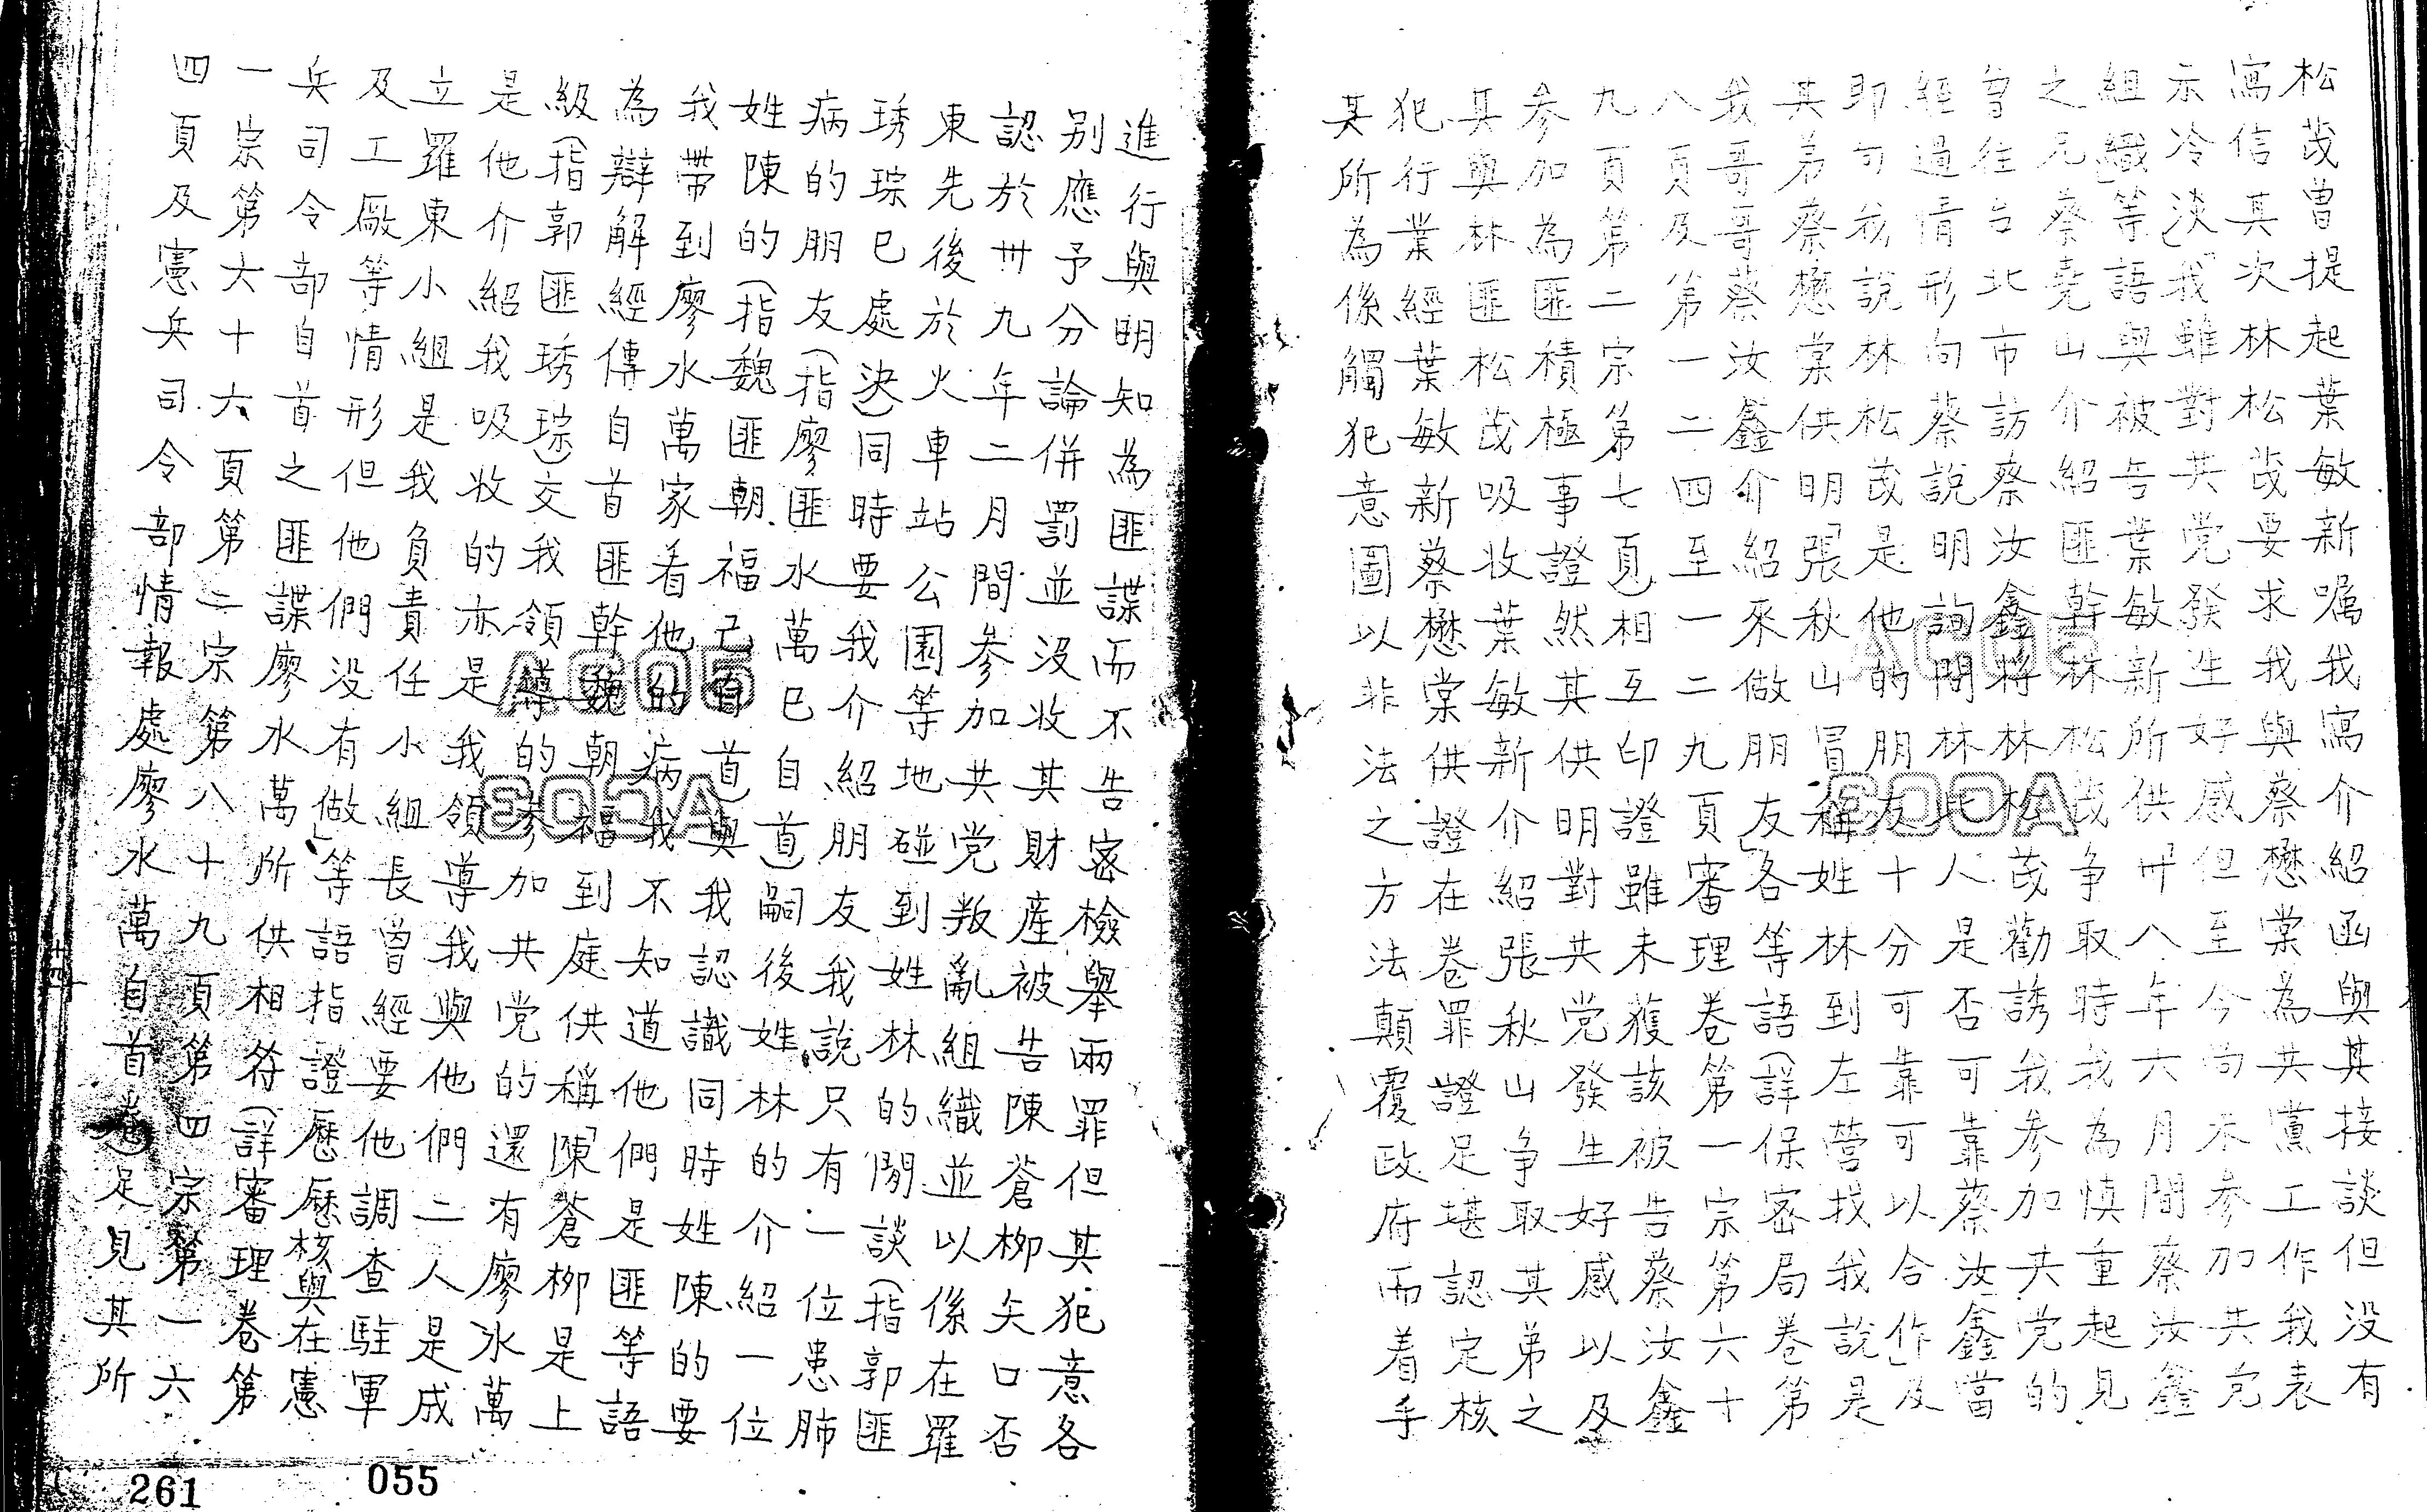 松茂曾提起葉敏新嘱我寫介紹函與其接談但没有
寫信其次林松茂要求我與蔡懋棠為共黨工作我表
示冷淡」「我雖對共党發生好感但至今尚未參加共党
組織」等語與被告葉敏新所供卅八年六月間蔡汝鑫
之兄蔡堯山介紹匪幹林松茂争取時我為慎重起見
曾往台北市訪蔡汝鑫將林松茂勸誘我參加共党的
經過情形向蔡說明詢問林此人是否可靠蔡汝鑫當
即向我說林松茂是他的朋友十分可靠可以合作」及
其弟蔡懋棠供明「張秋山冒稱姓林到左營找我說是
我哥哥蔡汝鑫介紹來做朋友」各等語(詳保密局卷第
八頁及第一二四至一二九頁審理卷第一宗第六十
九頁第二宗第七頁)相互印證雖未獲該被告蔡汝鑫
參加為匪積極事證然其供明對共党發生好感以及
其與林匪松茂吸收葉敏新介紹張秋山争取其弟之
犯行業經葉敏新蔡懋棠供證在卷罪證足堪認定核
其所為係觸犯意圖以非法之方法顛覆政府而着手
進行與明知為匪諜而不告密檢舉兩罪但其犯意各
别應予分論併罰並没收其財產被告陳蒼柳矢口否
認於卅九年二月間參加共党叛亂組織並以係在羅
東先後於火車站公園等地碰到姓林的閒談(指郭匪
琇琮已處決)同時要我介紹朋友我說只有一位患肺
病的朋友(指廖匪水萬已自首)嗣後姓林的介紹一位
姓陳的(指魏匪朝福已自首)與我認識同時姓陳的要
我帶到廖水萬家看他的病我不知道他們是匪等語
為辯解經傳自首匪幹魏朝福到庭供稱「陳蒼柳是上
級(指郭匪琇琮)交我領導的參加共党的還有廖水萬
是他介紹我吸收的亦是我領導我與他們二人是成
立羅東小組是我負責任小組長曾經要他調查駐軍
及工廠等情形但他們没有做」等語指證歷歷核與在憲
兵司令部自首之匪諜廖水萬所供相符(詳審理卷第
一宗第六十六頁第二宗第八十九頁第四宗第一六
四頁及憲兵司令部情報處廖水萬自首卷)足見其所
十四
261
055
AC05
AC03
AC05
AC03